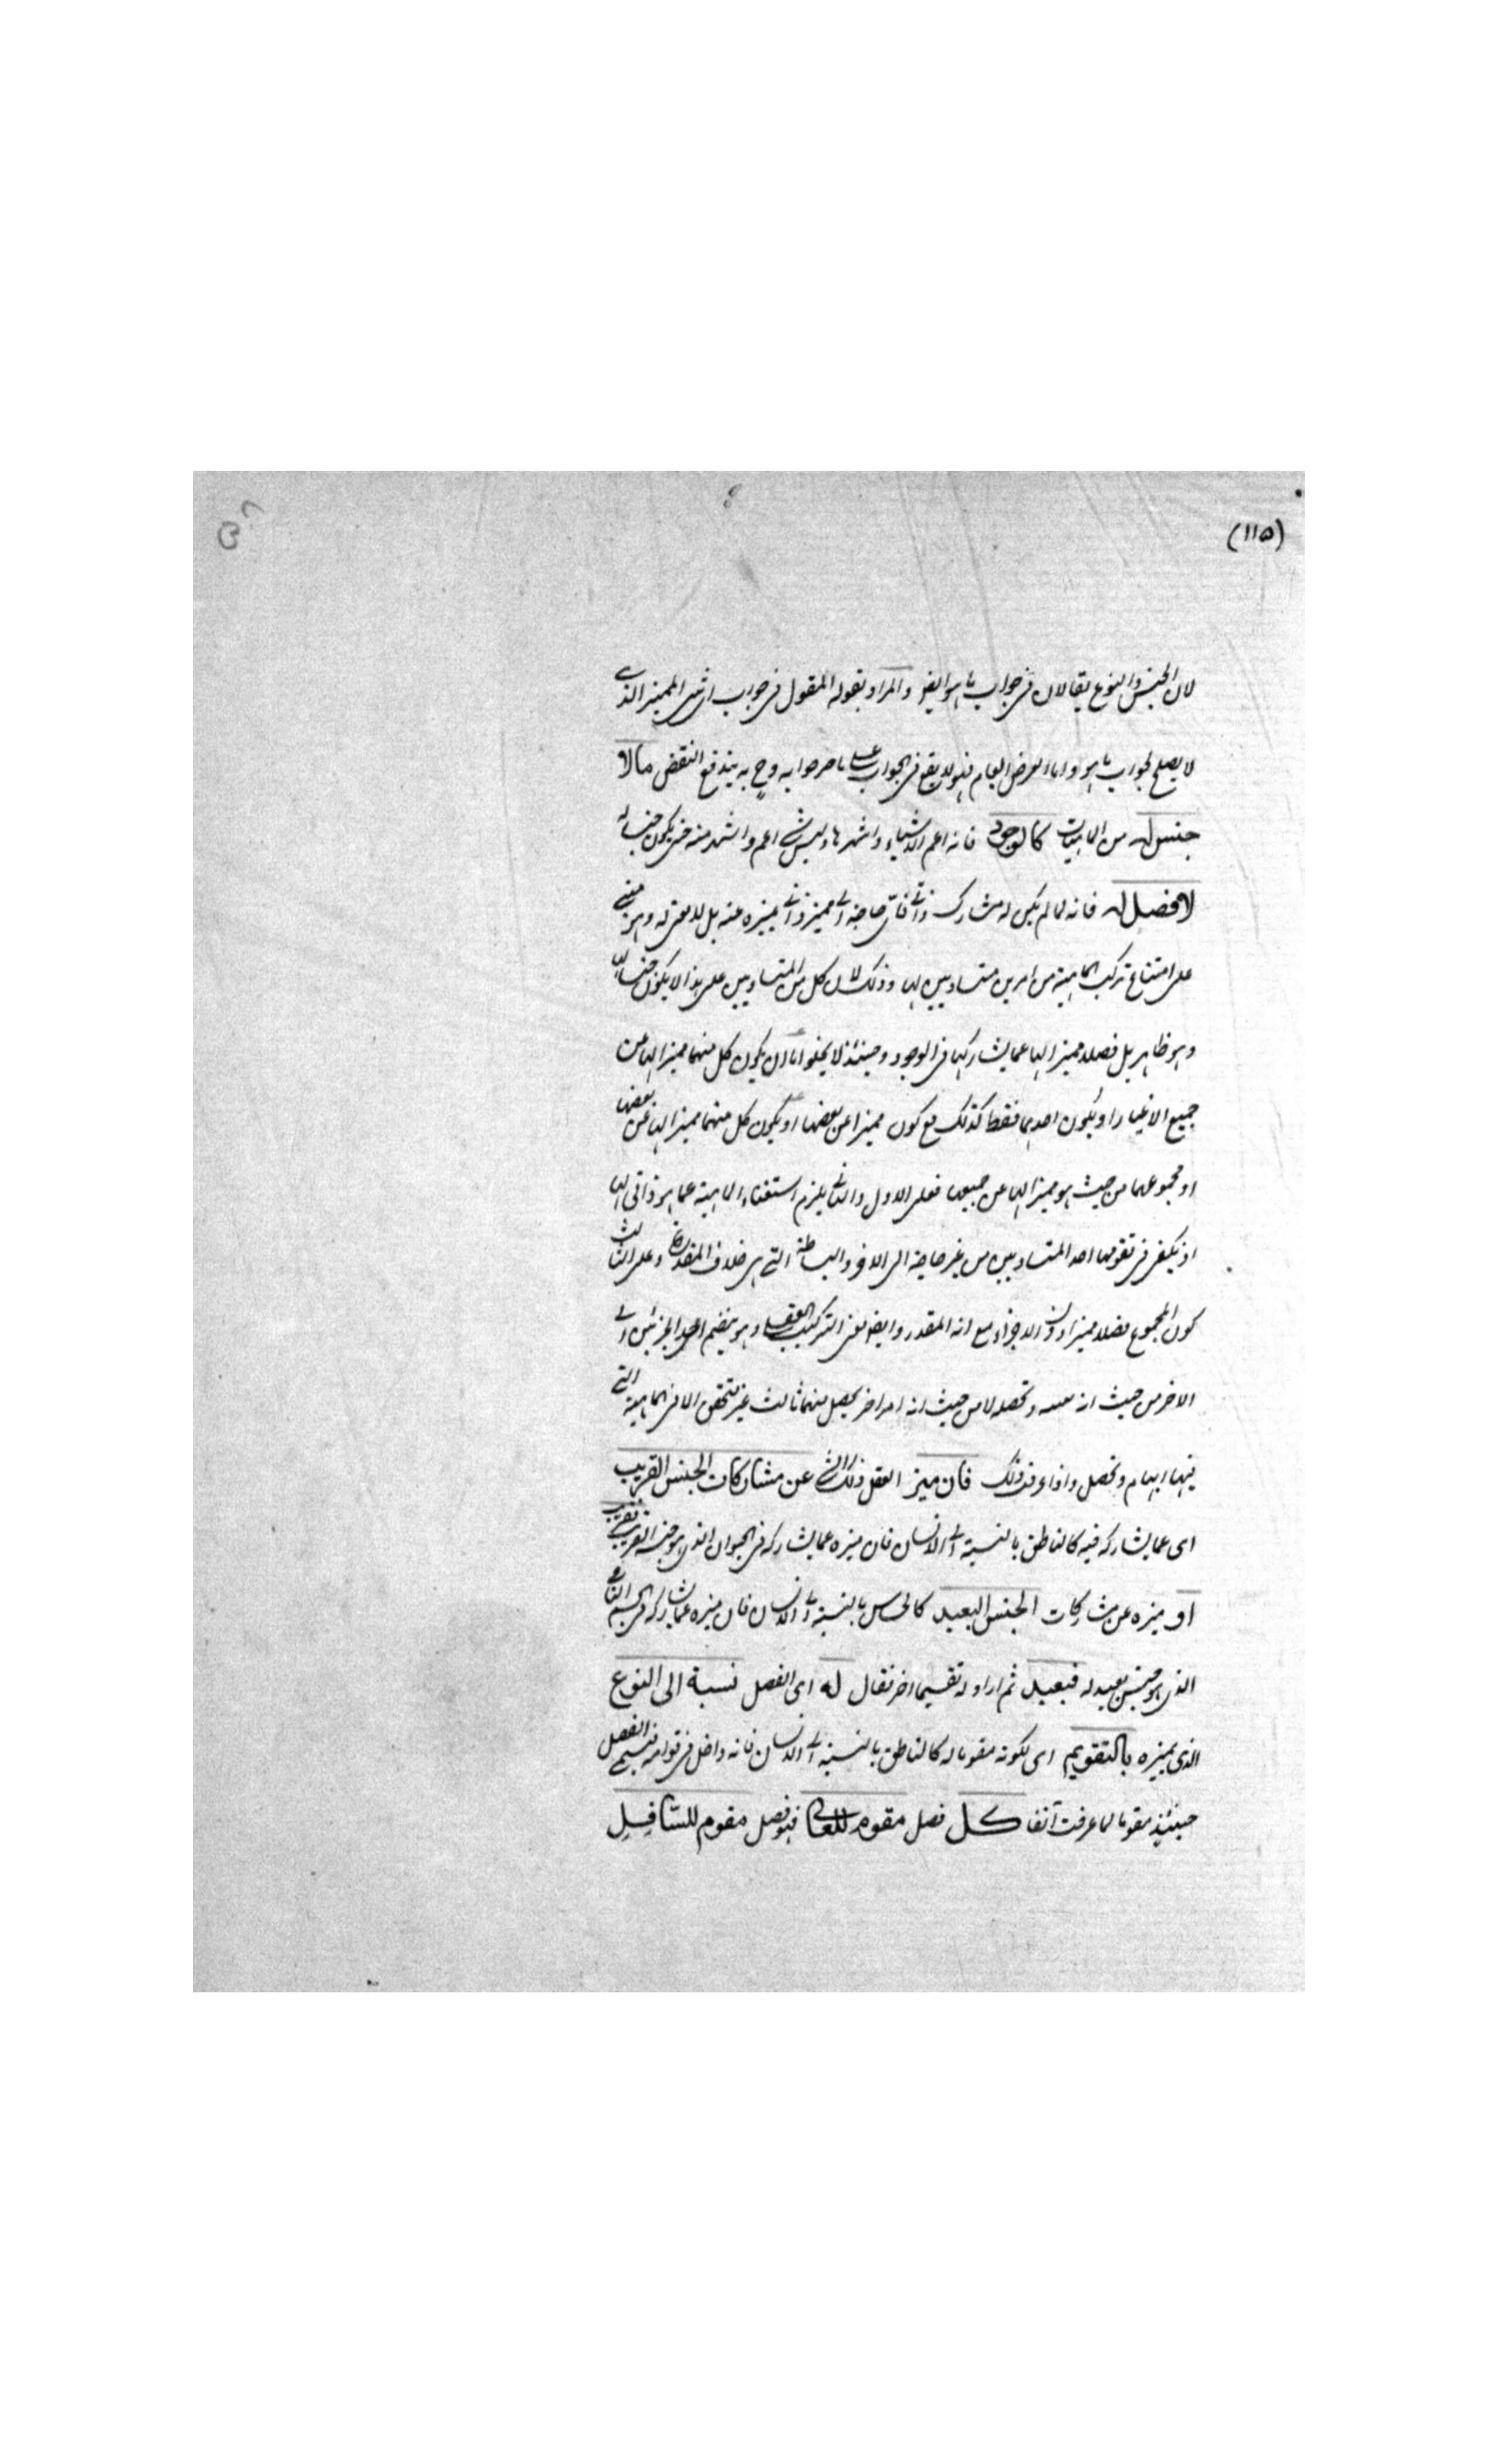 (١١٥)
لان الجنس والنوع يقالان فى جواب ما هو ايضا والمراد بقوله المقول فى جواب اى شى المميز الذى
لا يصلح لجواب ما هو واما العرض العام فهو لا يقع فى الجواب على ما صرحوا به وح به يندفع النقض مالا
جنس له من الماهيات كالوجود فانه اعم الاشياء واشهرها وليس شى اعم واشهر منه حتى يكون جنسا له
لا فصل له فانه لما لم يكن له مشارك ذاتى فاى حاجة الى مميز ذاتى يميزه عنه بل لا معنى له وهو مبنى
على امتناع تركب الماهية من امرين متساويين لها وذلك لان كل من المتساويين على هذا لا يكون جنسا لها
وهو ظاهر بل فصلا مميزا لها عما يشاركها فى الوجود وحينئذ لا يخلو اما ان يكون كل منهما مميزا لها عن
جميع الاغيار او يكون احدهما فقط كذلك مع كون مميزا عن بعضها او يكون كل منهما مميزا لها عن بعضها
او مجموعهما من حيث هو مميزا لها عن جميعها فعلى الاول والثانى يلزم استغناء الماهية عما هو ذاتى لها
اذ يكفى فى تقومها احد المتساويين من غير حاجة الى الاخر والبساطة التى هى خلاف المقدر وعلى الثالث
كون المجموع فصلا مميزا دون الاجزاء مع انه المقدر وايضا معنى التركيب العقلى وهو ينضم احد الجزئين الى
الاخر من حيث انه وتحصله لا من حيث انه امر اخر يحصل منهما ثالث غير متحقق الا فى ماهية التى
فيها ابهام وتحصل واذا عرفت ذلك فان ميز العقل ذلك الشى عن مشاركات الجنس القريب
اى عما يشاركه فيه كالناطق بالنسبة الى الانسان فان ميزه عما يشاركه فى الحيوان الذى هو جنسه القريب فقريب
او ميزه عن مشاركات الجنس البعيد كالحساس بالنسبة الى الانسان فان ميزه عما يشاركه فى الجسم النامى
الذى هو جنس بعيد له فبعيد ثم اراد له تقسيما اخر فقال له اى الفصل نسبة الى النوع
الذى يميزه بالتقويم اى بكونه مقوما له كالناطق بالنسبة الى الانسان فانه داخل فى قوامه فيسمى الفصل
حينئذ مقوما لما عرفت آنفا كل فصل مقوم للعالى فهو فصل مقوم للسّافِلِ